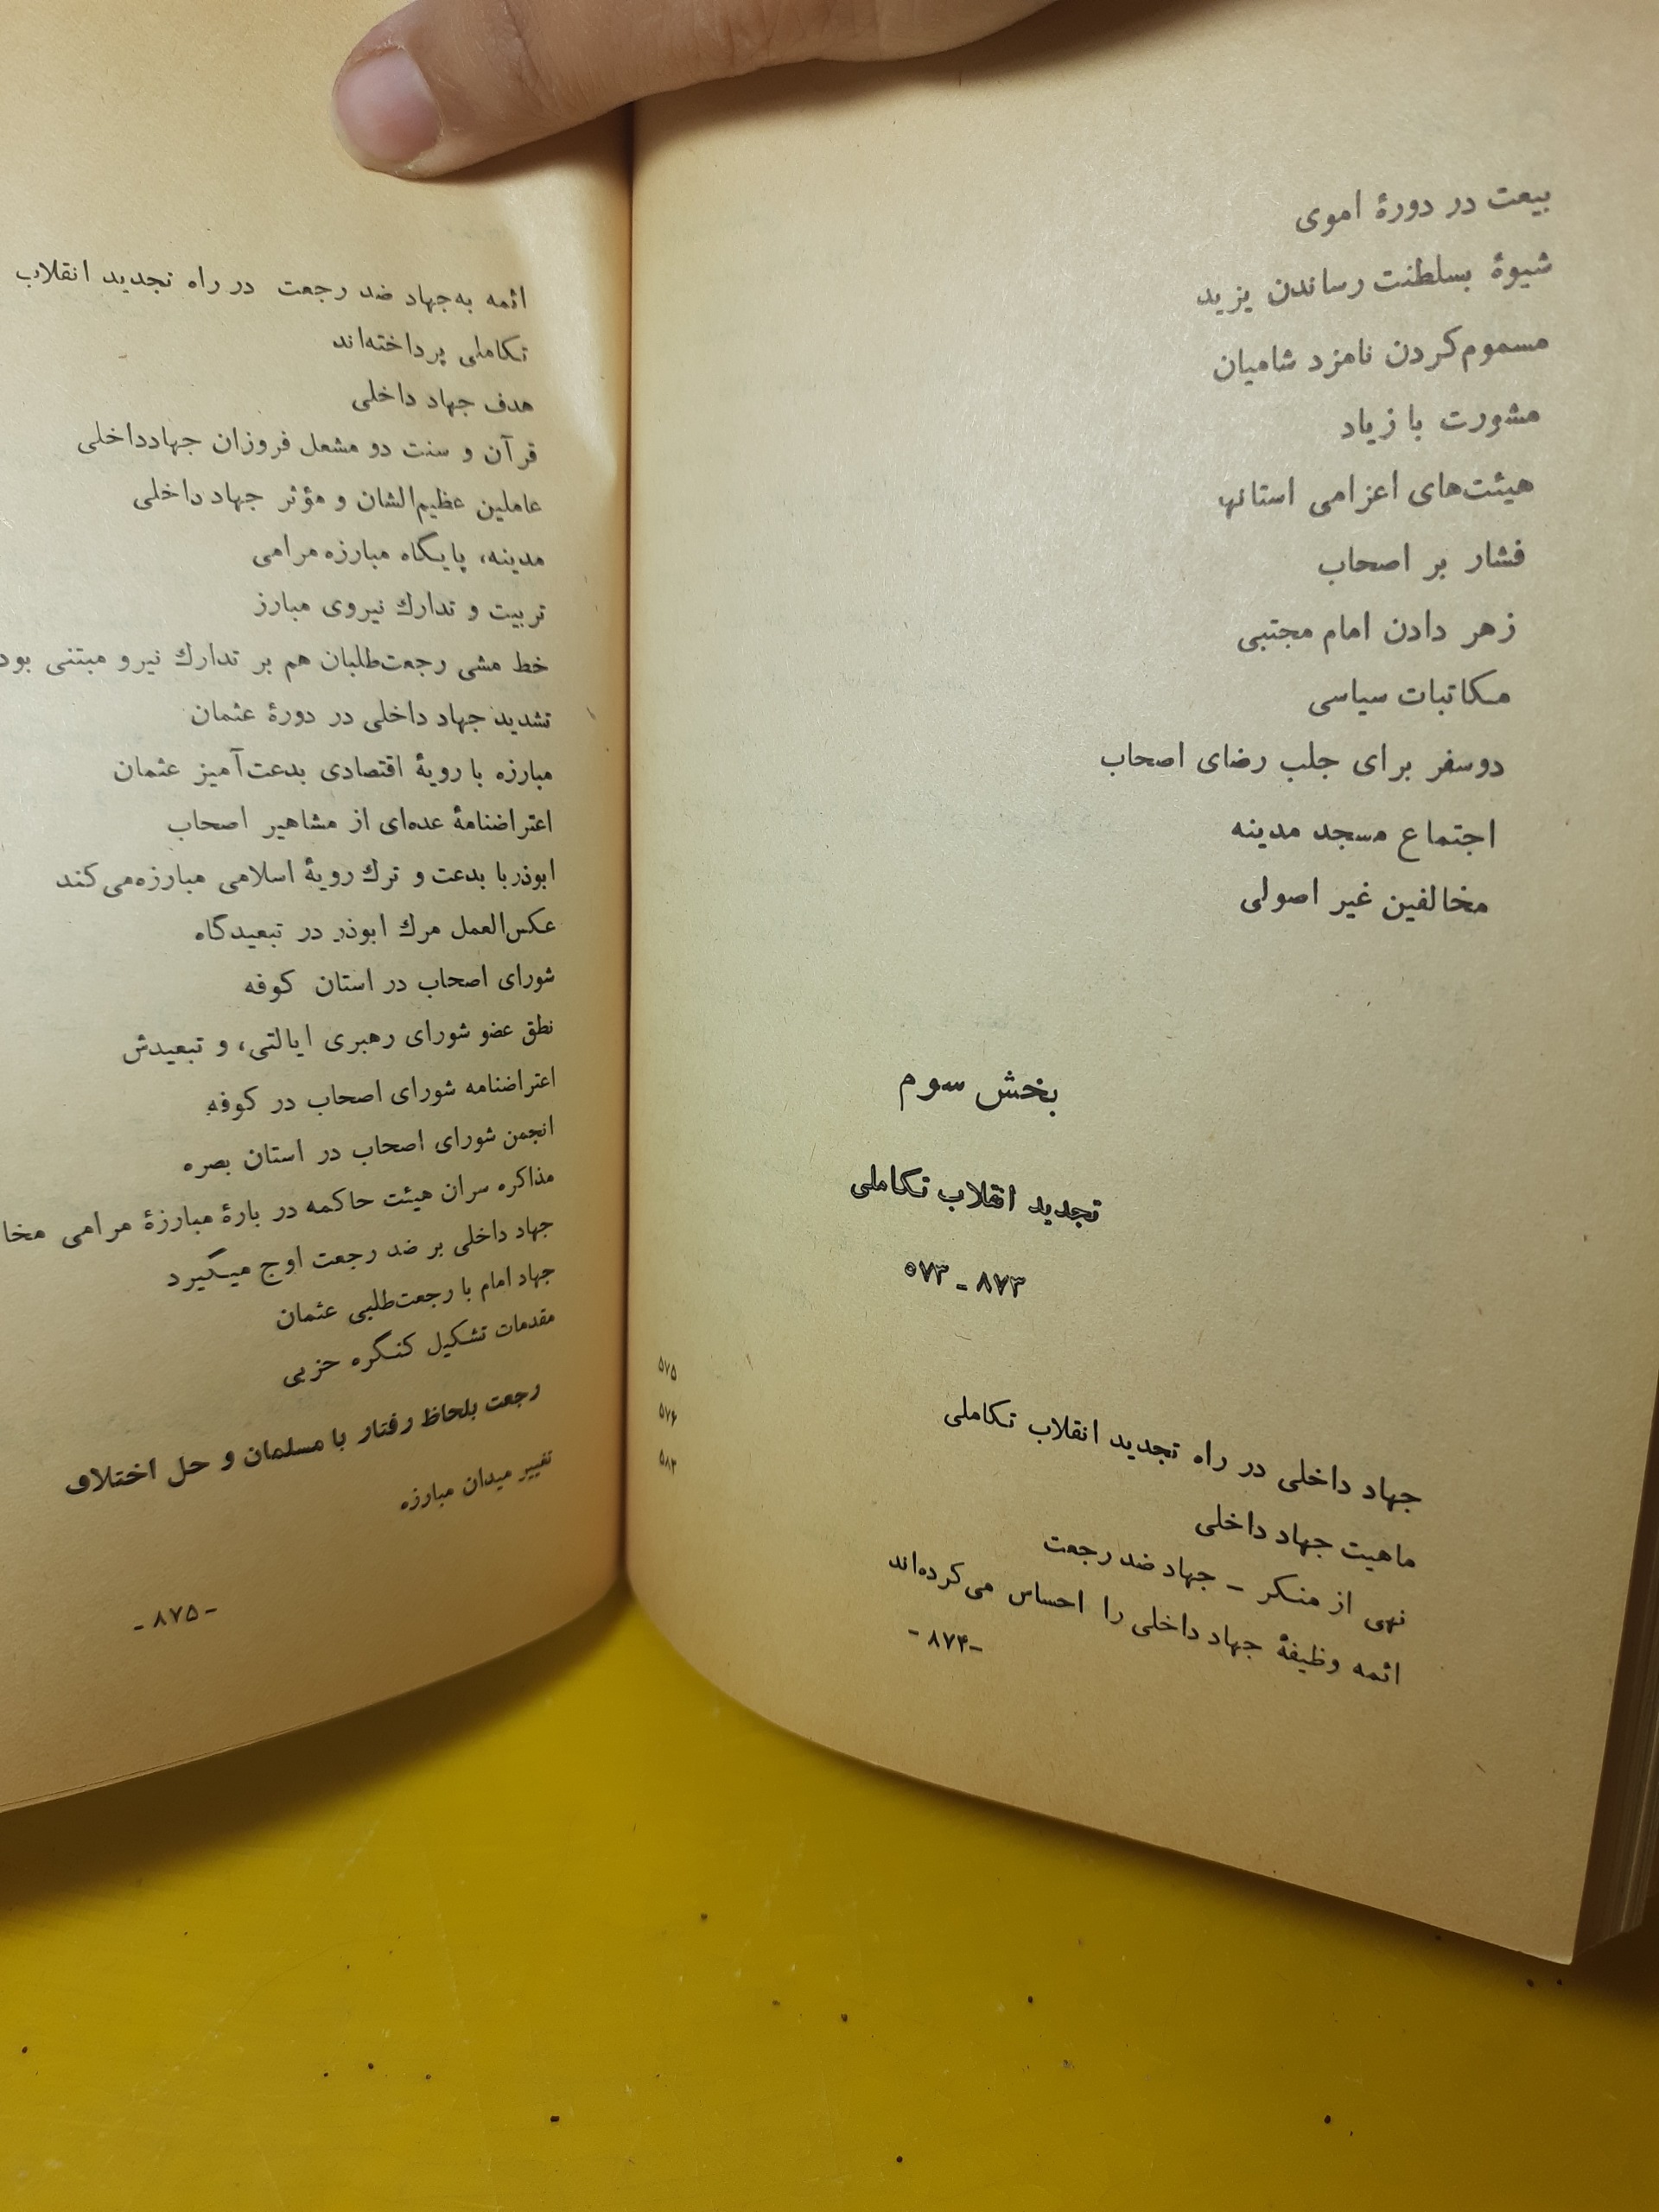 بیعت در دورهٔ اموی
شیوهٔ بسلطنت رساندن یزید
مسموم‌کردن نامزد شامیان
مشورت با زیاد
هیئت‌های اعزامی استانها
فشار بر اصحاب
زهر دادن امام مجتبی
مکاتبات سیاسی
دوسفر برای جلب رضای اصحاب
اجتماع مسجد مدینه
مخالفین غیر اصولی
بخش سوم
تجدید انقلاب تکاملی
۸۷۳ - ۵۷۳
جهاد داخلی در راه تجدید انقلاب تکاملی ۵۷۵
ماهیت جهاد داخلی ۵۷۶
نهی از منکر - جهاد ضد رجعت ۵۸۲
ائمه وظیفهٔ جهاد داخلی را احساس می‌کرده‌اند
-۸۷۴-
ائمه به‌جهاد ضد رجعت در راه تجدید انقلاب
تکاملی پرداخته‌اند
هدف جهاد داخلی
قرآن و سنت دو مشعل فروزان جهادداخلی
عاملین عظیم‌الشان و مؤثر جهاد داخلی
مدینه، پایگاه مبارزه مرامی
تربیت و تدارك نیروی مبارز
خط مشی رجعت‌طلبان هم بر تدارك نیرو مبتنی بود
تشدید جهاد داخلی در دورهٔ عثمان
مبارزه با رویهٔ اقتصادی بدعت‌آمیز عثمان
اعتراضنامهٔ عده‌ای از مشاهیر اصحاب
ابوذربا بدعت و ترك رویهٔ اسلامی مبارزه‌می‌کند
عکس‌العمل مرك ابوذر در تبعیدگاه
شورای اصحاب در استان کوفه
نطق عضو شورای رهبری ایالتی، و تبعیدش
اعتراضنامه شورای اصحاب در کوفه
انجمن شورای اصحاب در استان بصره
مذاکره سران هیئت حاکمه در بارهٔ مبارزهٔ مرامی مخا
جهاد داخلی بر ضد رجعت اوج میگیرد
جهاد امام با رجعت‌طلبی عثمان
مقدمات تشکیل کنگره حزبی
رجعت بلحاظ رفتار با مسلمان و حل اختلاف
تغییر میدان مبارزه
-۸۷۵-